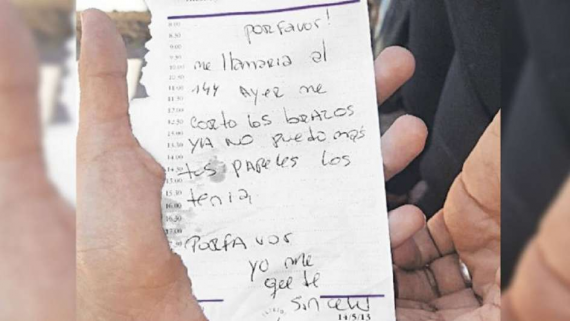 PORFAVOR!
me llamaria al
144 Ayer me
corto los brazos
YA NO puedo mas
los PAPELES los
tenia,
PORFAVOR
yo me
que de
sin celu
14/5/13